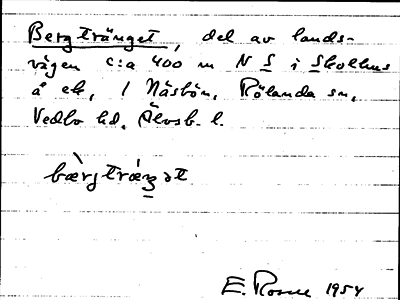 Bergtränget, del av lands-
vägen c:a 400 m N S i Skolhus
å ek, 1 Näsbön, Rölanda sn,
Vedbo hd. Älvsb. l.
bærgtrænʒət
E. 1954